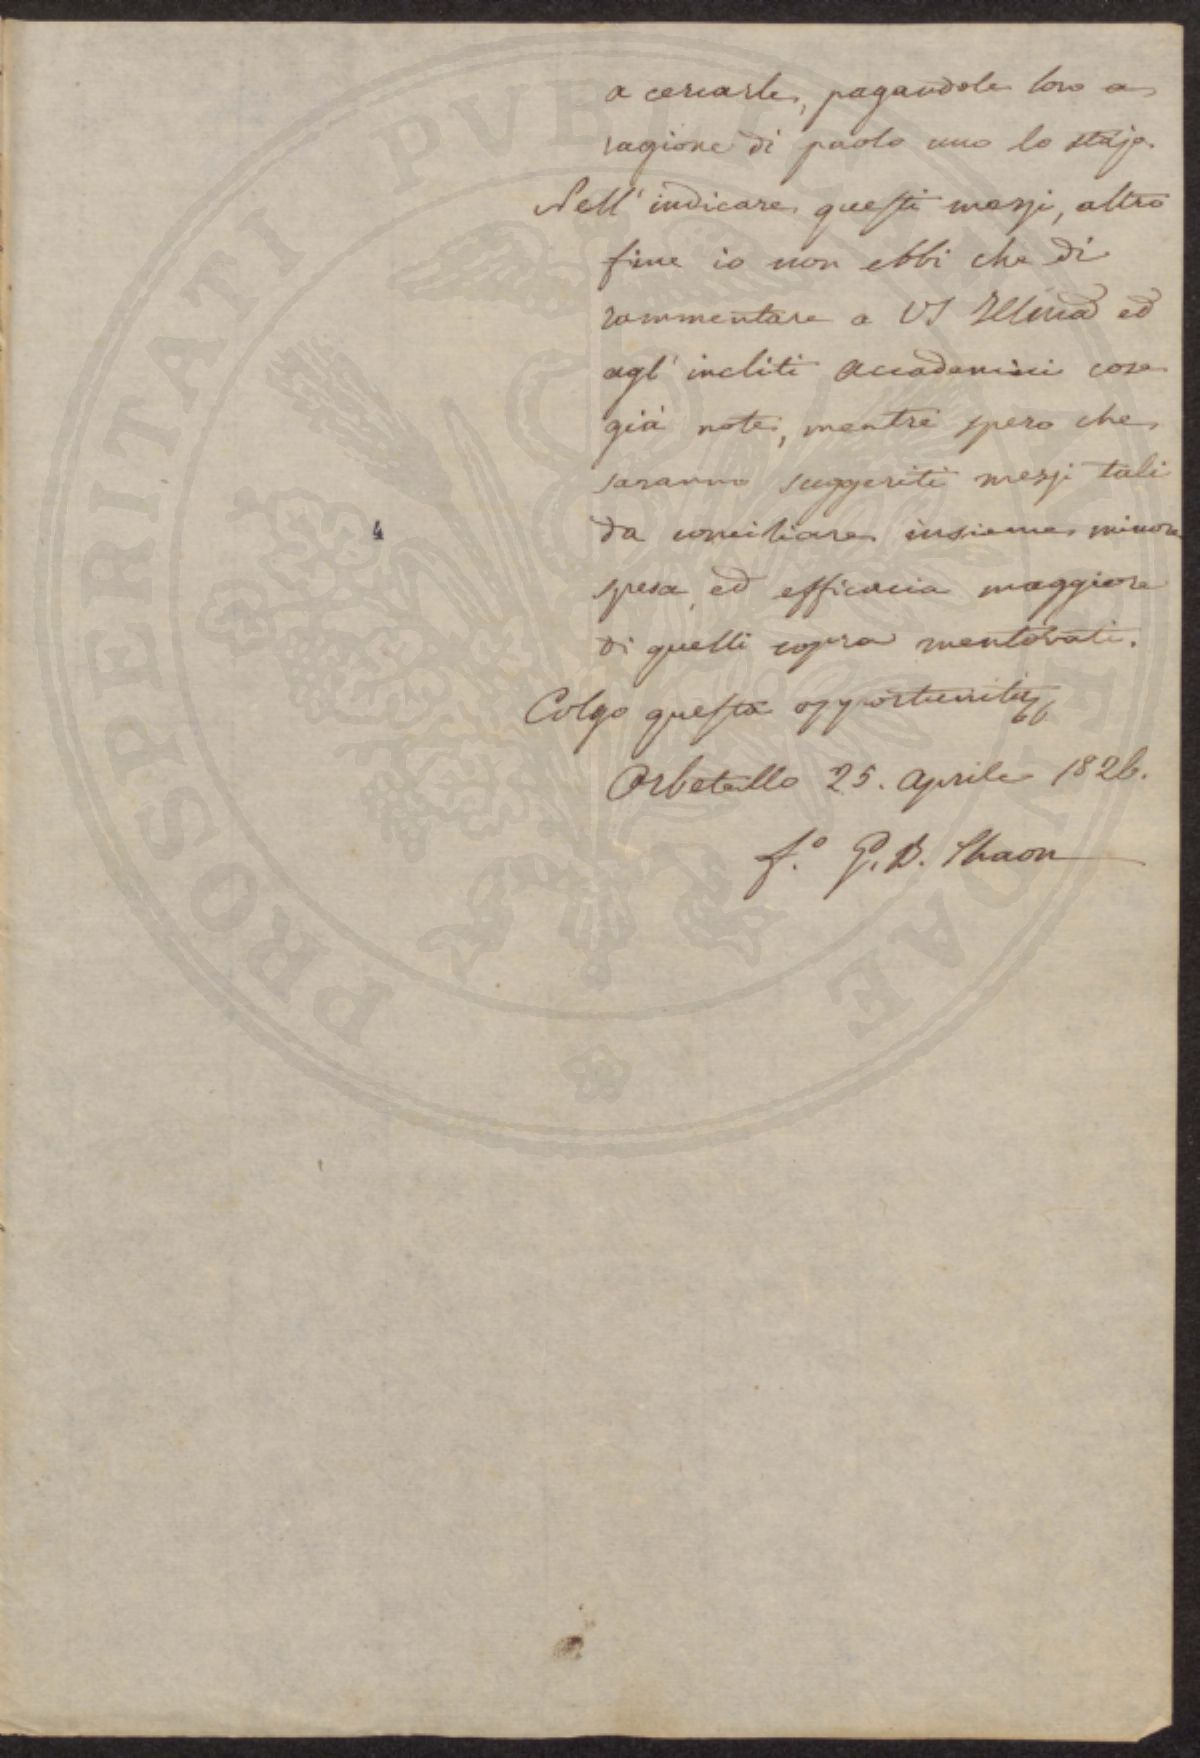 a cercarle, pagandole loro a
ragione di paolo uno lo stajo.
Nell' indicare questi mezzi, altro
fine io non ebbi che di
rammentare a VS Illma ed
agl' incliti Accademici cose
già note, mentre spero che
saranno suggeriti mezzi tali
da conciliare insieme minore
spesa, ed efficacia maggiore
di quelli sopra mentovati.
4
Colgo questa opportunità
Orbetello 25. Aprile 1826.
f.º G. B. Thaon
PROSPERITATI PVBLICAE